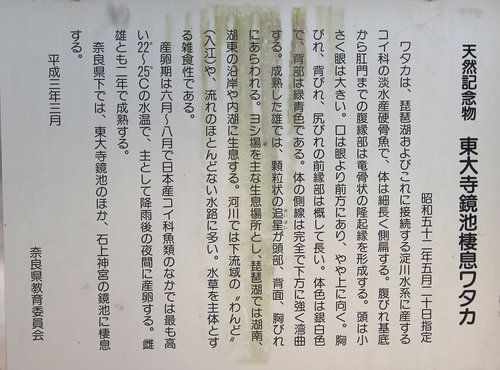 天然記念物　東大寺鏡池棲息ワタカ
昭和五十二年五月二十日指定
ワタカは、琵琶湖およびこれに接続する淀川水系に産する
コイ科の淡水産硬骨魚で、体は細長く側扁する。腹びれ基底
から肛門までの腹縁部は竜骨状の隆起縁を形成する。頭は小
さく眼は大きい。口は眼より前方にあり、やや上に向く。胸
びれ、背びれ、尻びれの前縁部は概して長い。体色は銀白色
で、背部は緑青色である。体の側線は完全で下方に強く湾曲
する。成熟した雄では、顆粒状の追星が頭部、背面、胸びれ
にあらわれる。ヨシ場を主な生息場所とし、琵琶湖では湖南、
湖東の沿岸や内湖に生息する。河川では下流域の〝わんど〟
（入江）や、流れのほとんどない水路に多い。水草を主体とす
る雑食性である。
産卵期は六月～八月で日本産コイ科魚類のなかでは最も高
い22°～25℃の水温で、主として降雨後の夜間に産卵する。雌
雄とも二年で成熟する。
奈良県下では、東大寺鏡池のほか、石上神宮の鏡池に棲息
する。
平成三年三月
奈良県教育委員会